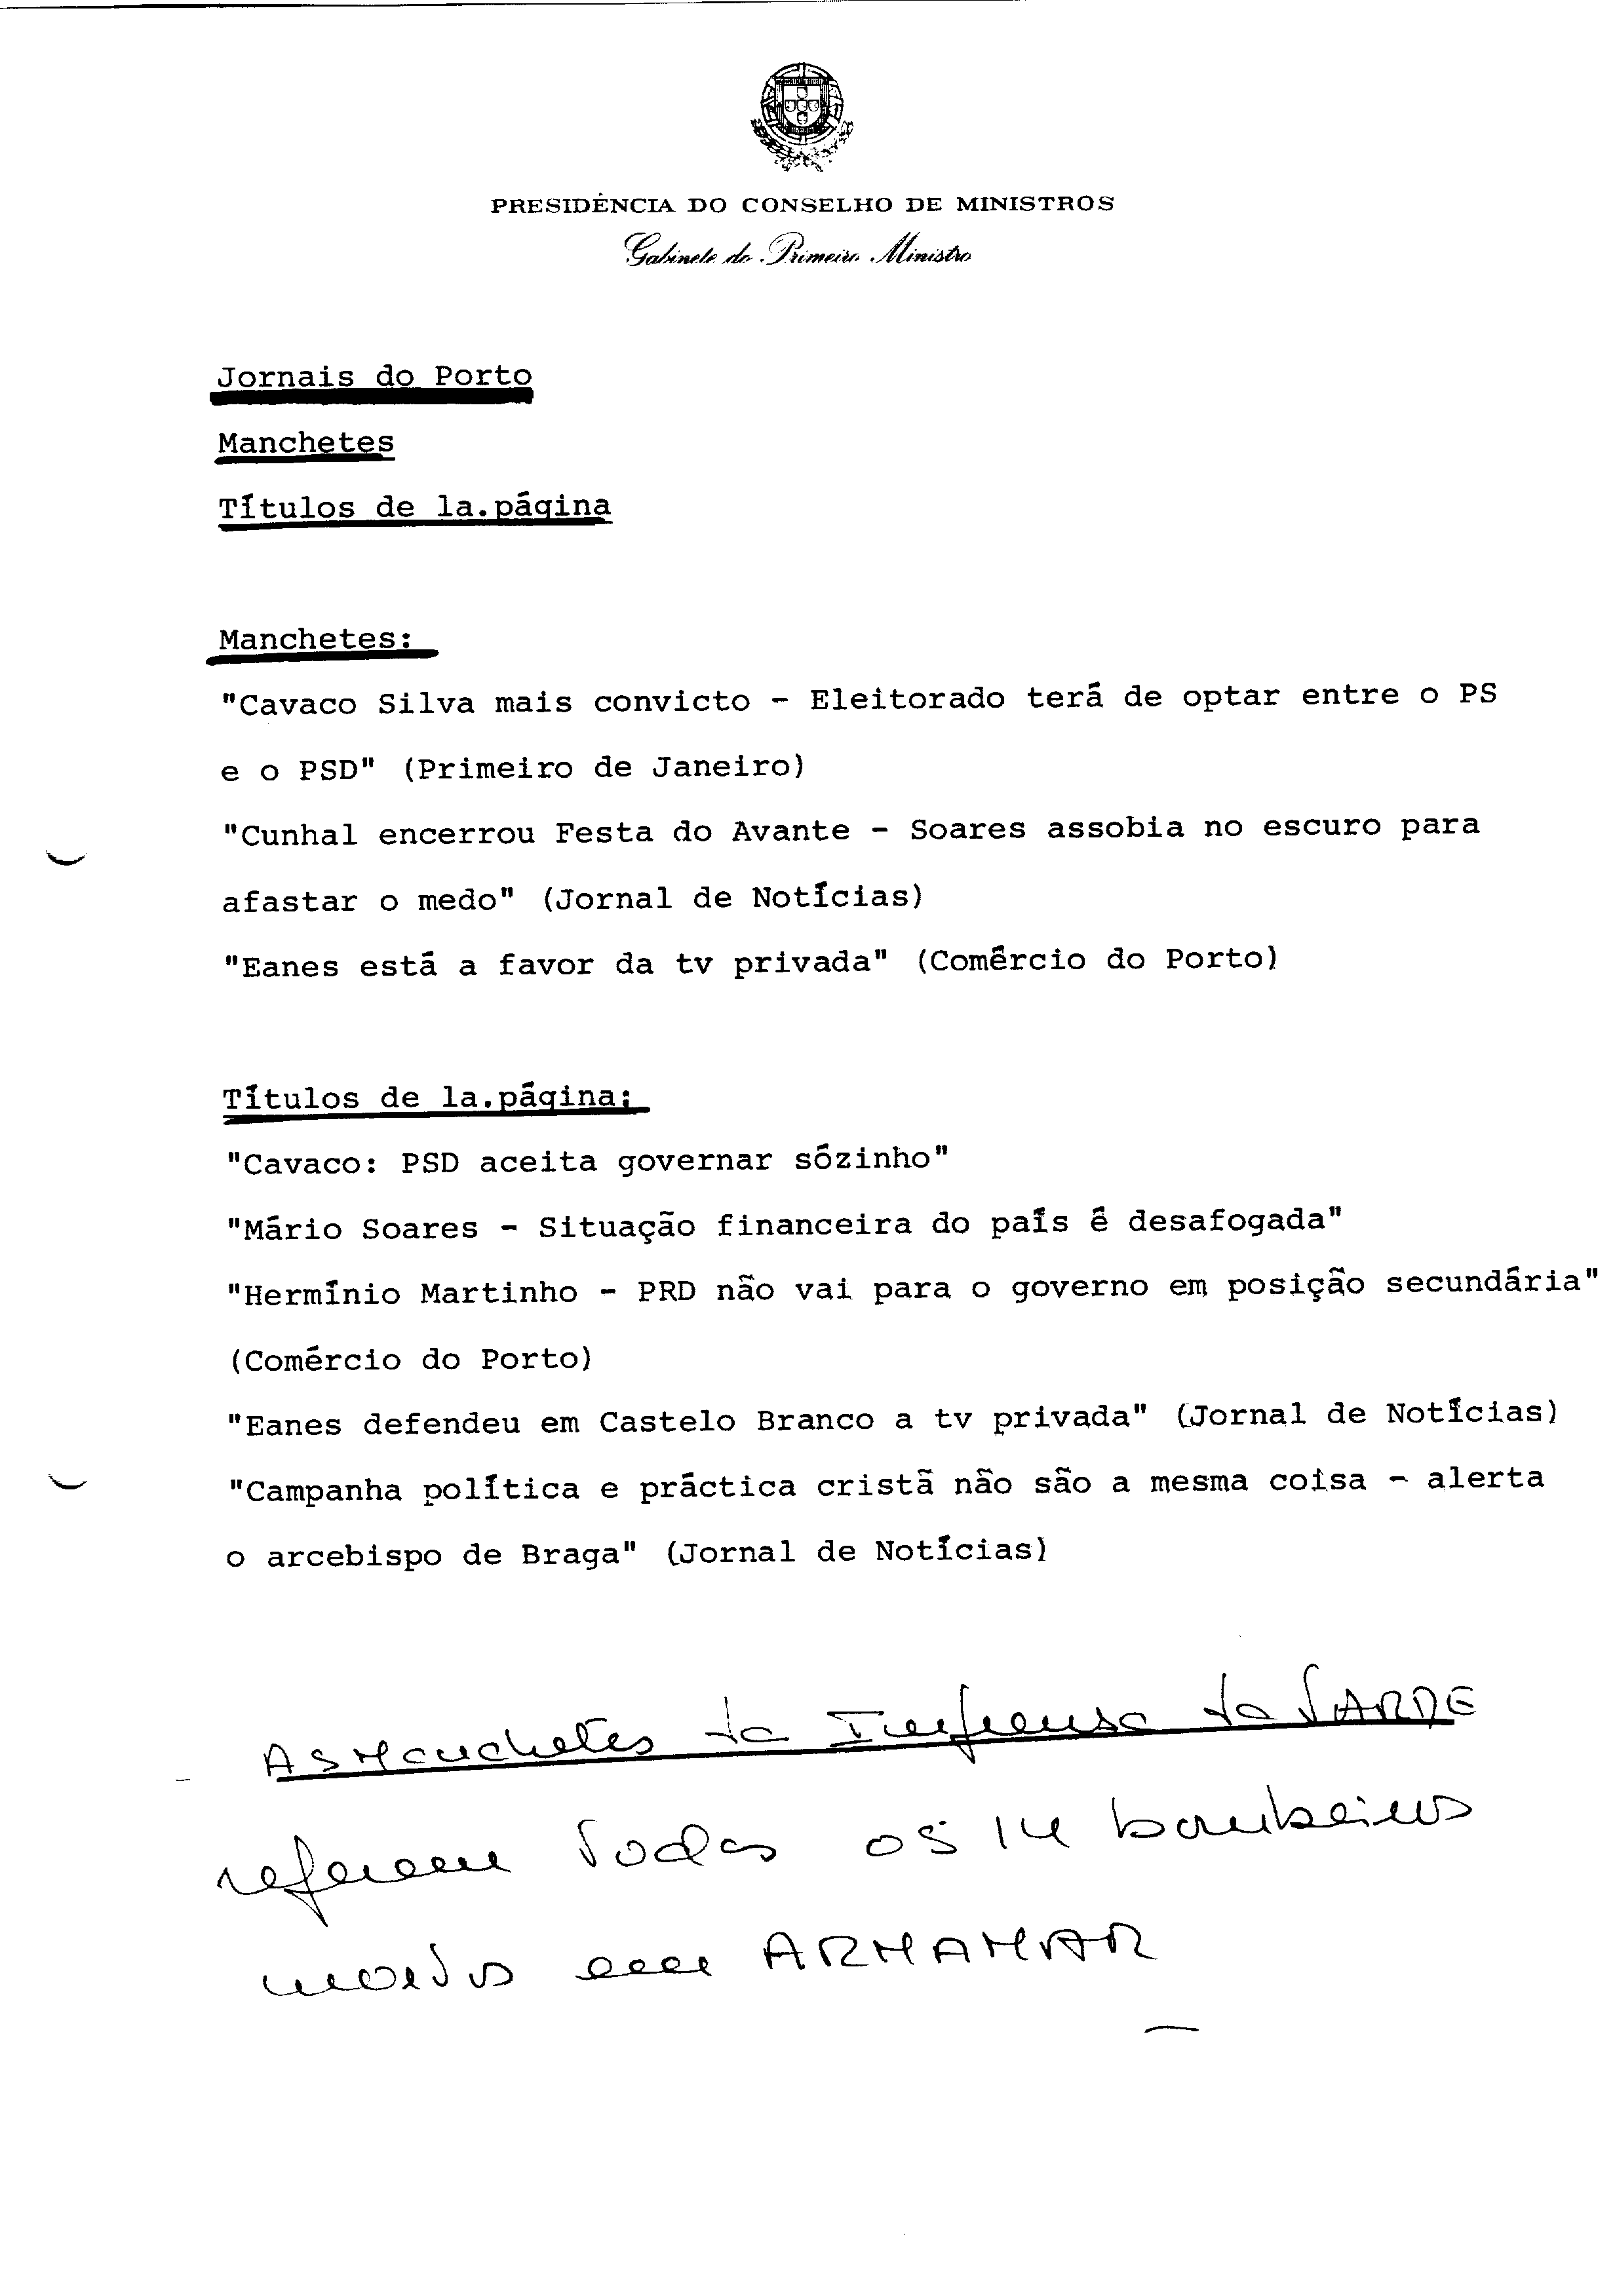 PRESIDÊNCIA DO CONSELHO DE MINISTROS
Gabinete do Primeiro Ministro
Jornais do Porto
Manchetes
Títulos de la.página
Manchetes:
"Cavaco Silva mais convicto - Eleitorado terá de optar entre o PS
e o PSD" (Primeiro de Janeiro)
"Cunhal encerrou Festa do Avante - Soares assobia no escuro para
afastar o medo" (Jornal de Notícias)
"Eanes está a favor da tv privada" (Comércio do Porto)
Títulos de la.página:
"Cavaco: PSD aceita governar sózinho"
"Mário Soares - Situação financeira do país é desafogada"
"Hermínio Martinho - PRD não vai para o governo em posição secundária"
(Comércio do Porto)
"Eanes defendeu em Castelo Branco a tv privada" (Jornal de Notícias)
"Campanha política e práctica cristã não são a mesma coisa - alerta
o arcebispo de Braga" (Jornal de Notícias)
AS Manchetes da Imprensa da TARDE
referem Todas os 14 bombeiros
mortos em ARMAMAR